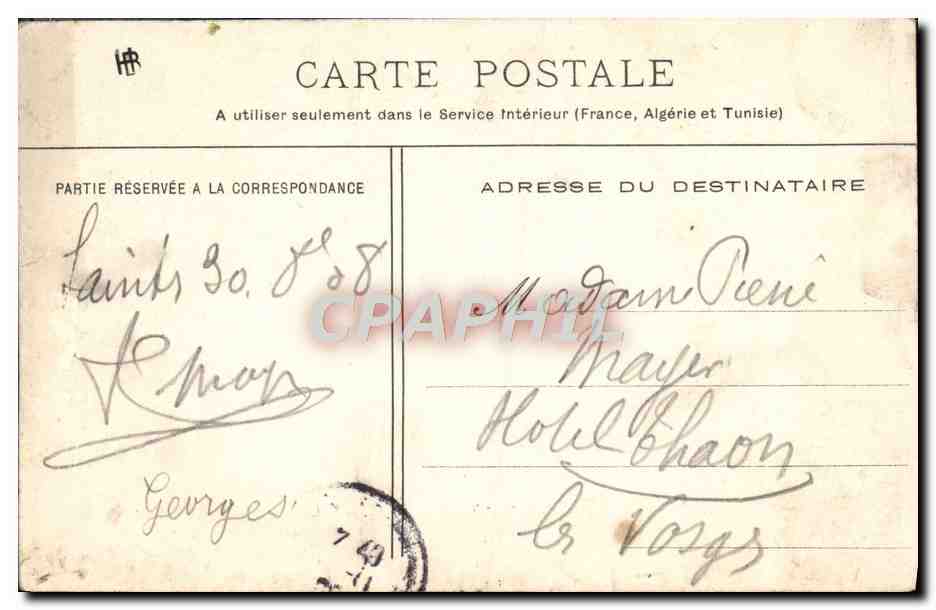 CARTE POSTALE
A utiliser seulement dans le Service Intérieur (France, Algérie et Tunisie)
PARTIE RÉSERVÉE A LA CORRESPONDANCE
Saints 30. 8
Georges
ADRESSE DU DESTINATAIRE
Madame
Mayer
Hotel Thaon
les Vosges
CPAPHIL